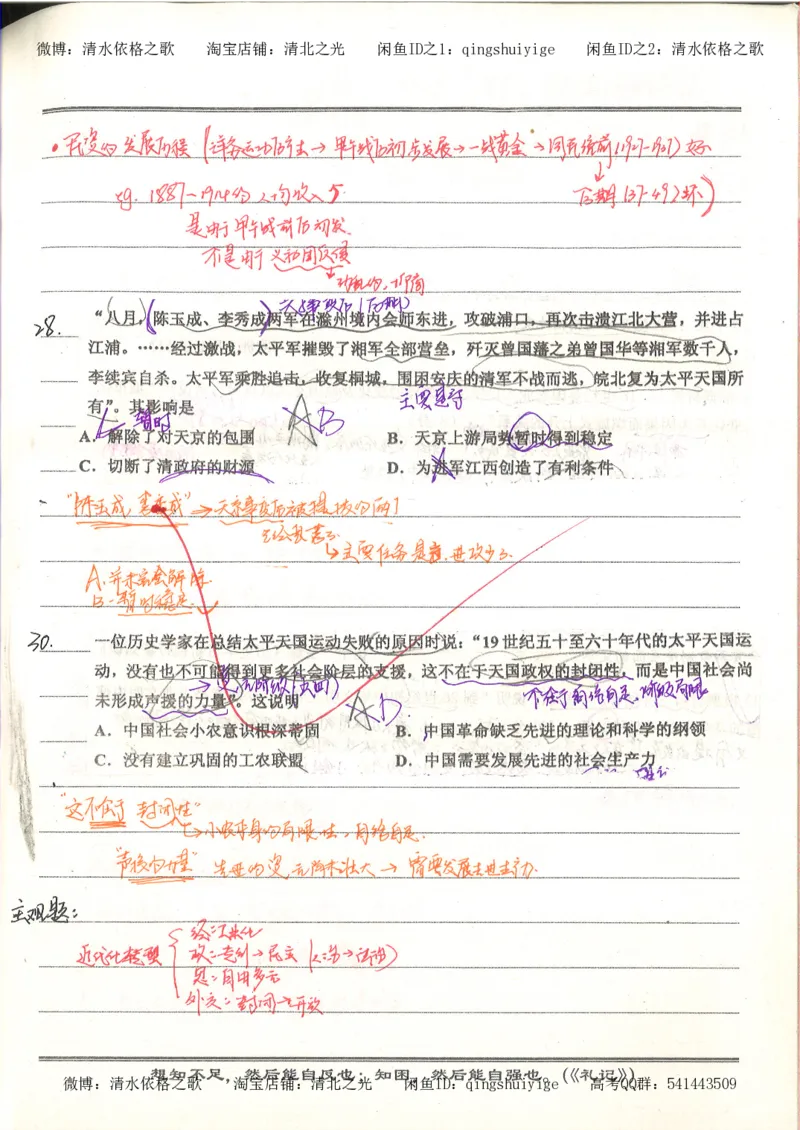 微博：清水依格之歌 淘宝店铺：清北之光 闲鱼ID之1：qingshuiyige 闲鱼ID之2：清水依格之歌
•民资的发展历程（洋务运动后产生→甲午战后初步发展→一战黄金→国民统前(1927-1937)好
eg. 1887-1914的人均收入↑
后期(37-49)坏）
是由于甲午战前后初发.
不是由于义和团反侵
天京事变后(后期)
28.
“八月，陈玉成、李秀成两军在滁州境内会师东进，攻破浦口，再次击溃江北大营，并进占
江浦。……经过激战，太平军摧毁了湘军全部营垒，歼灭曾国藩之弟曾国华等湘军数千人，
李续宾自杀。太平军乘胜追击，收复桐城，围困安庆的清军不战而逃，皖北复为太平天国所
有”。其影响是
主要是守
暂时
AB
A．解除了对天京的包围 B．天京上游局势暂时得到稳定
C．切断了清政府的财源 D．为进军江西创造了有利条件
“陈玉成 李秀成”→天京事变后被提拔的两个
已经衰落了
↳主要任务是守,进攻少了.
A.并未完全解除.
B.-暂时稳定.
30.
一位历史学家在总结太平天国运动失败的原因时说：“19世纪五十至六十年代的太平天国运
动，没有也不可能得到更多社会阶层的支援，这不在于天国政权的封闭性，而是中国社会尚
未形成声援的力量”。这说明
AD
A．中国社会小农意识根深蒂固 B．中国革命缺乏先进的理论和科学的纲领
C．没有建立巩固的工农联盟 D．中国需要发展先进的社会生产力
“这不在于 封闭性”
↳小农本身的局限性,自给自足.
“声援的力量” 先进的资、无阶未壮大→需要发展先进生产力.
主观题：
近代化转型
经:工业化
政:专制→民主（人治→法治）
思:自由多元
外交:封闭→开放
想知不足，然后能自反也；知困，然后能自强也。(《礼记》)
微博：清水依格之歌 淘宝店铺：清北之光 闲鱼ID：qingshuiyige 高考QQ群：541443509